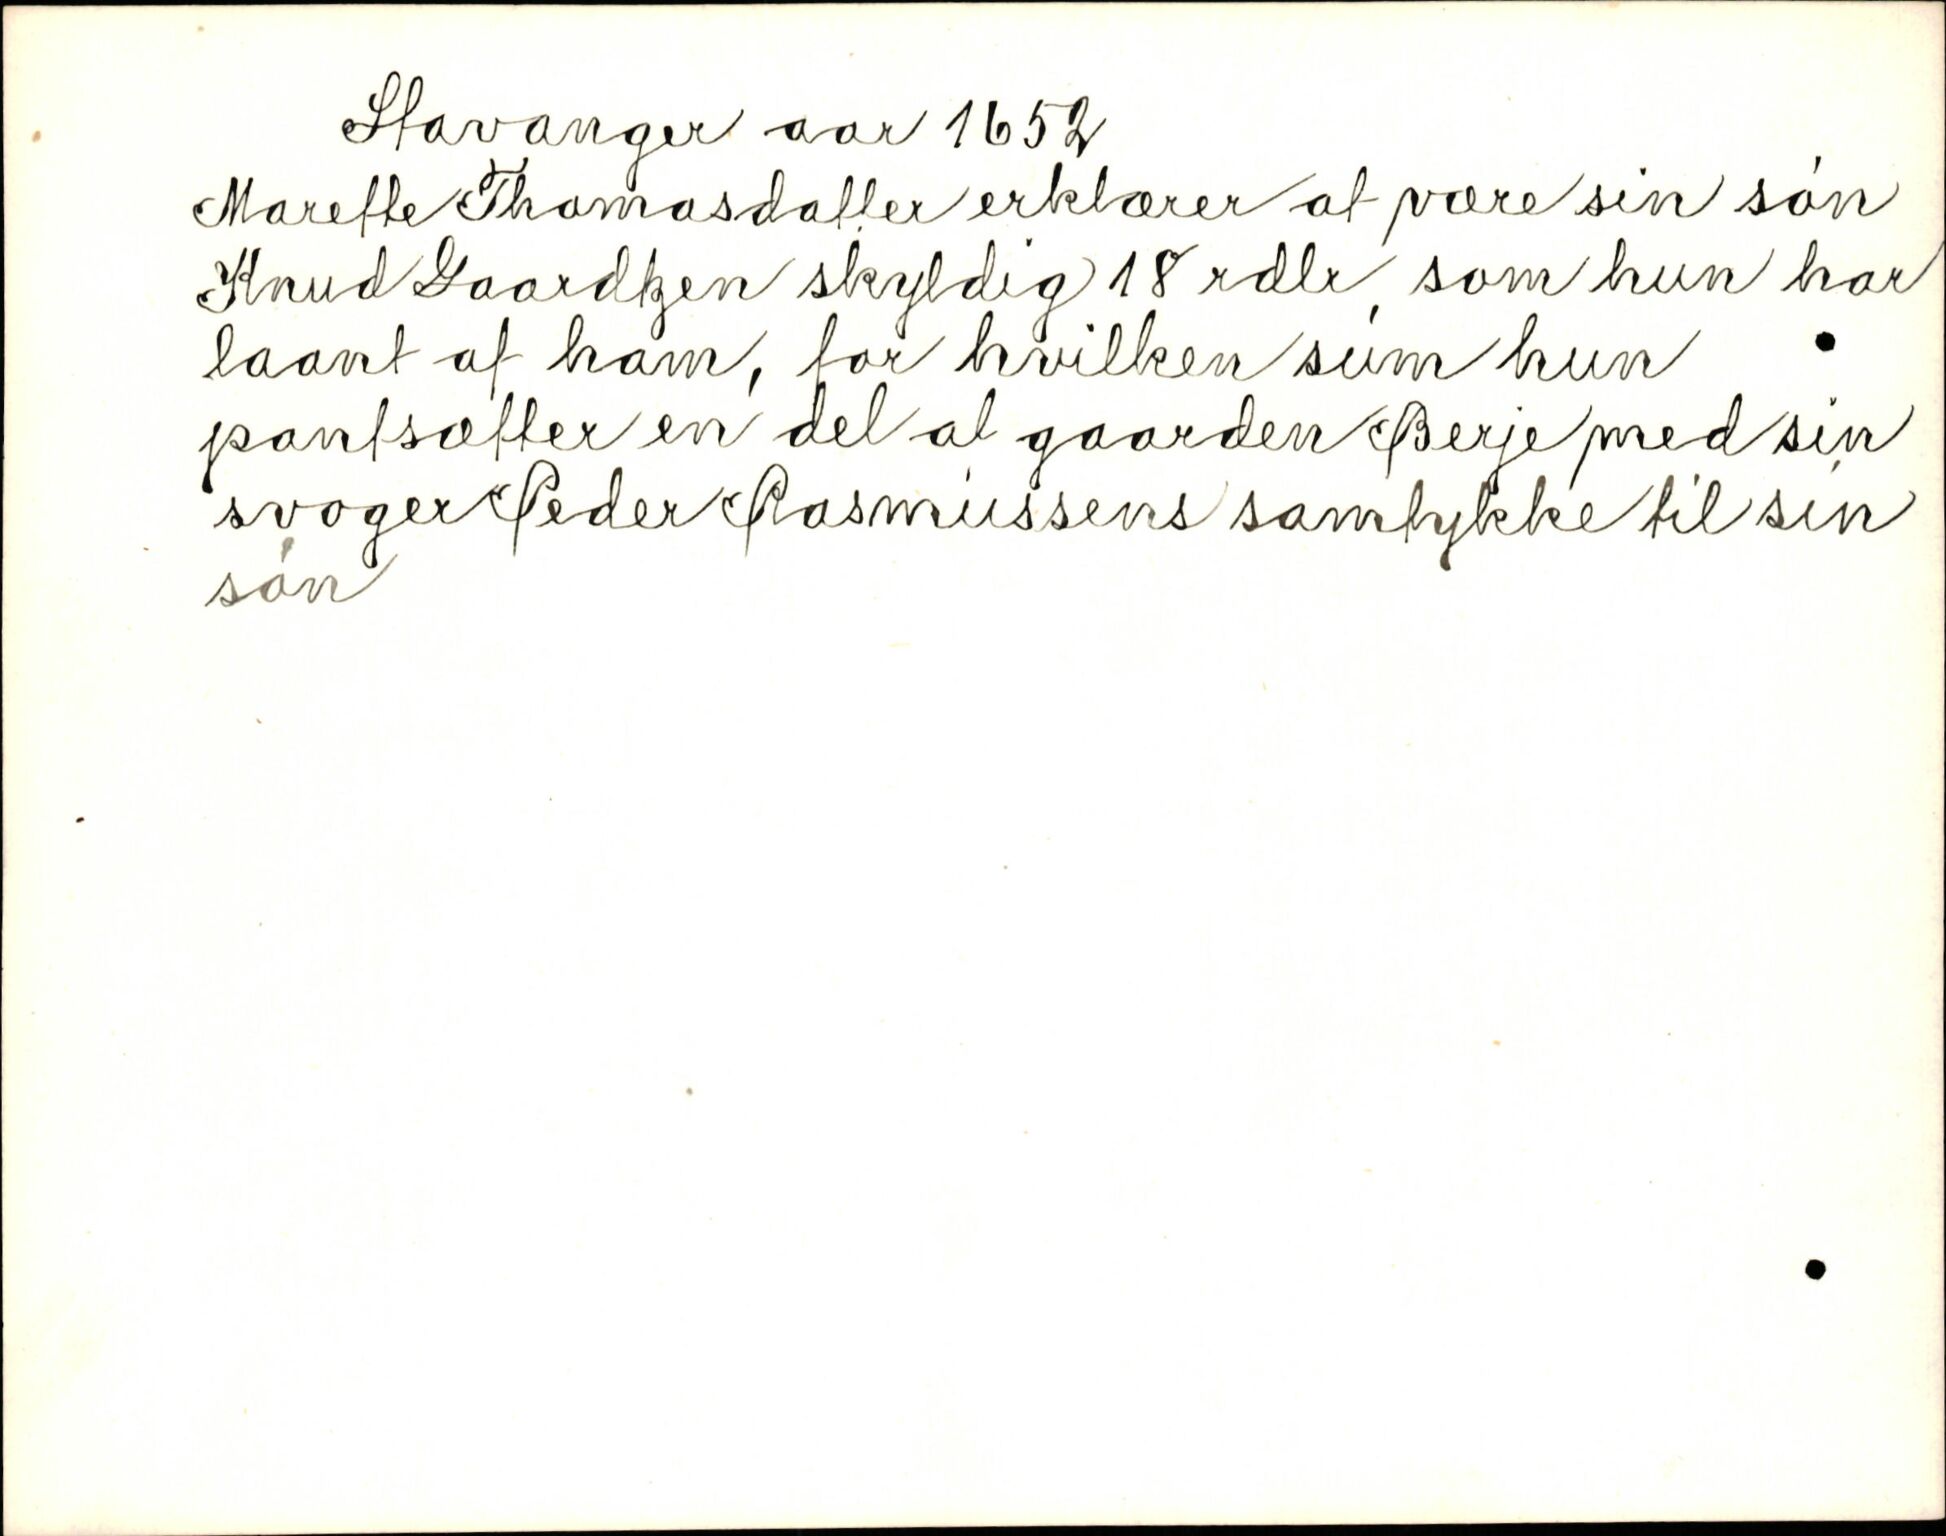 Stavanger aar 1652
Marette Thomasdatter erklærer at være sin søn
Knud Gaardtzen skyldig 18 rdlr, som hun har
laant af ham, for hvilken sum hun
pantsætter en del al gaarden Berje med sin
svoger Peder Rasmussens samtykke til sin
søn